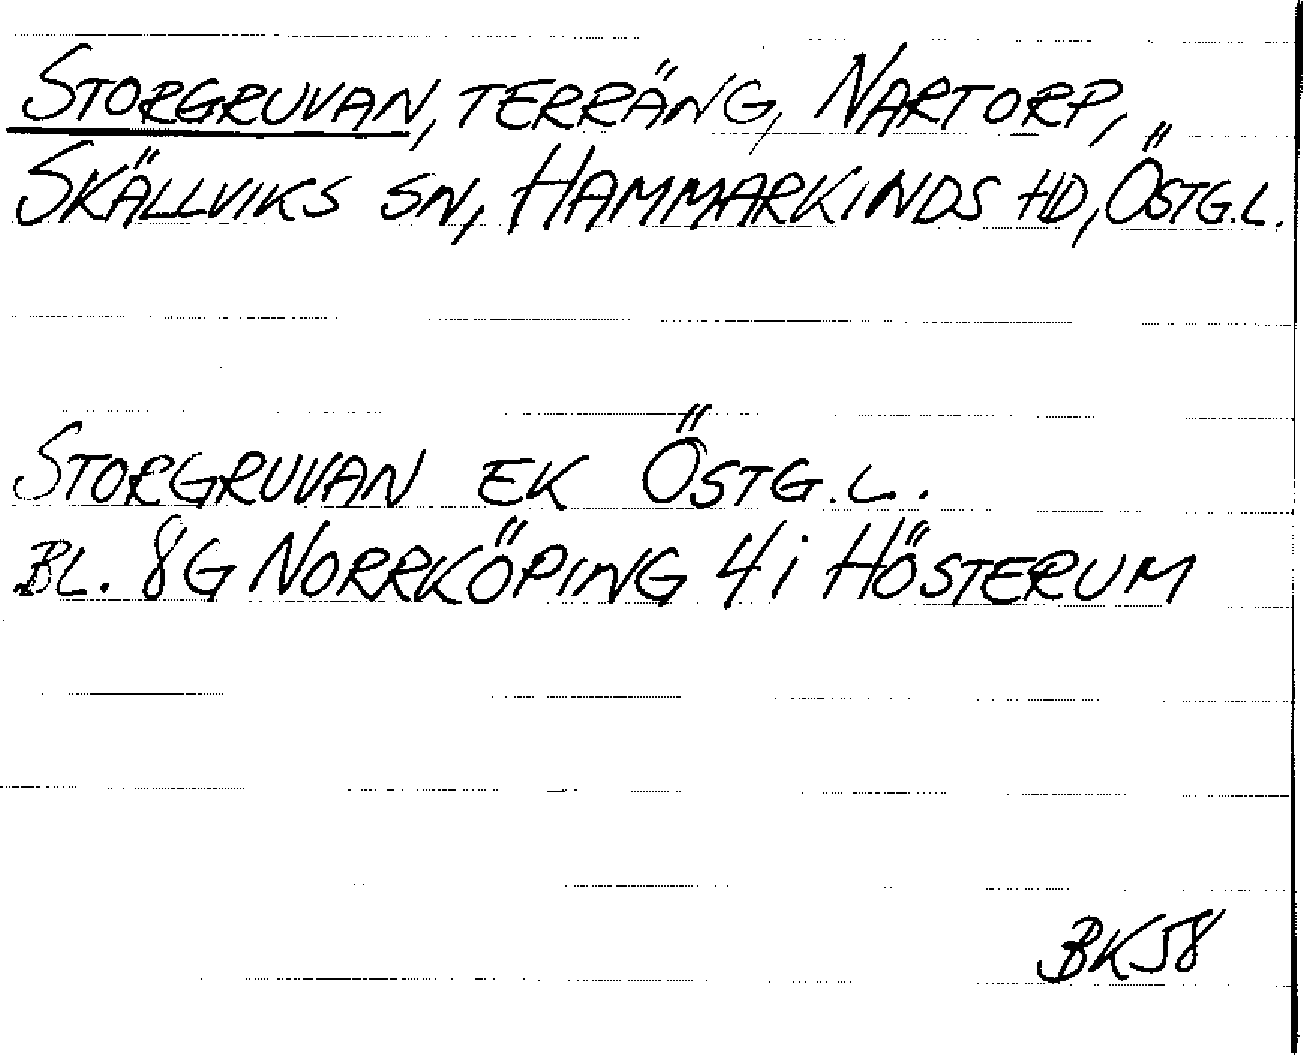 STORGRUVAN, TERRÄNG, NARTORP,
SKÄLLVIKS SN, HAMMARKINDS HD, ÖSTG.L.
STORGRUVAN EK ÖSTG.L.
BL. 8G NORRKÖPING 4i HÖSTERUM
BK58